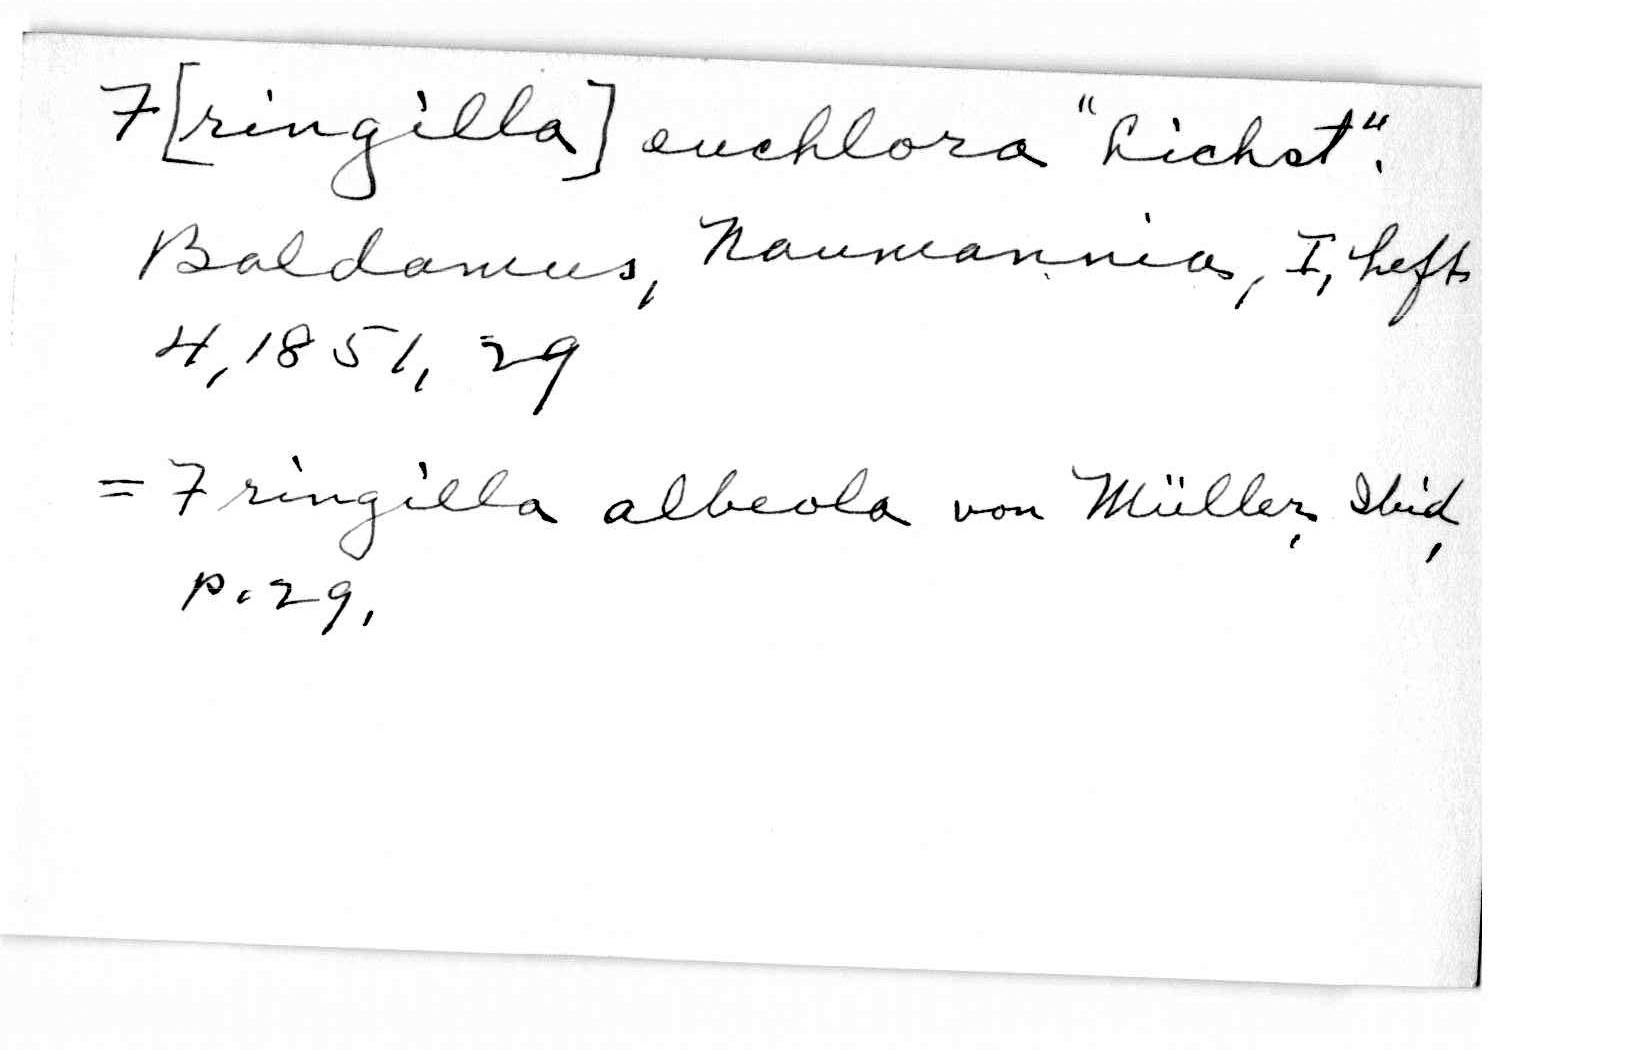 F[ringilla] euchlora "Lichst".
Baldamus, Naumannia, I, heft
4, 1851, 29
= Fringilla albeola von Müller, Ibid,
p. 29,